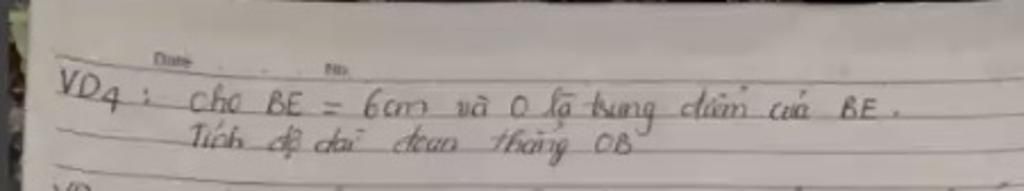 Date No.
VD4: Cho BE = 6cm và O là trung điểm của BE.
Tính độ dài đoạn thẳng OB